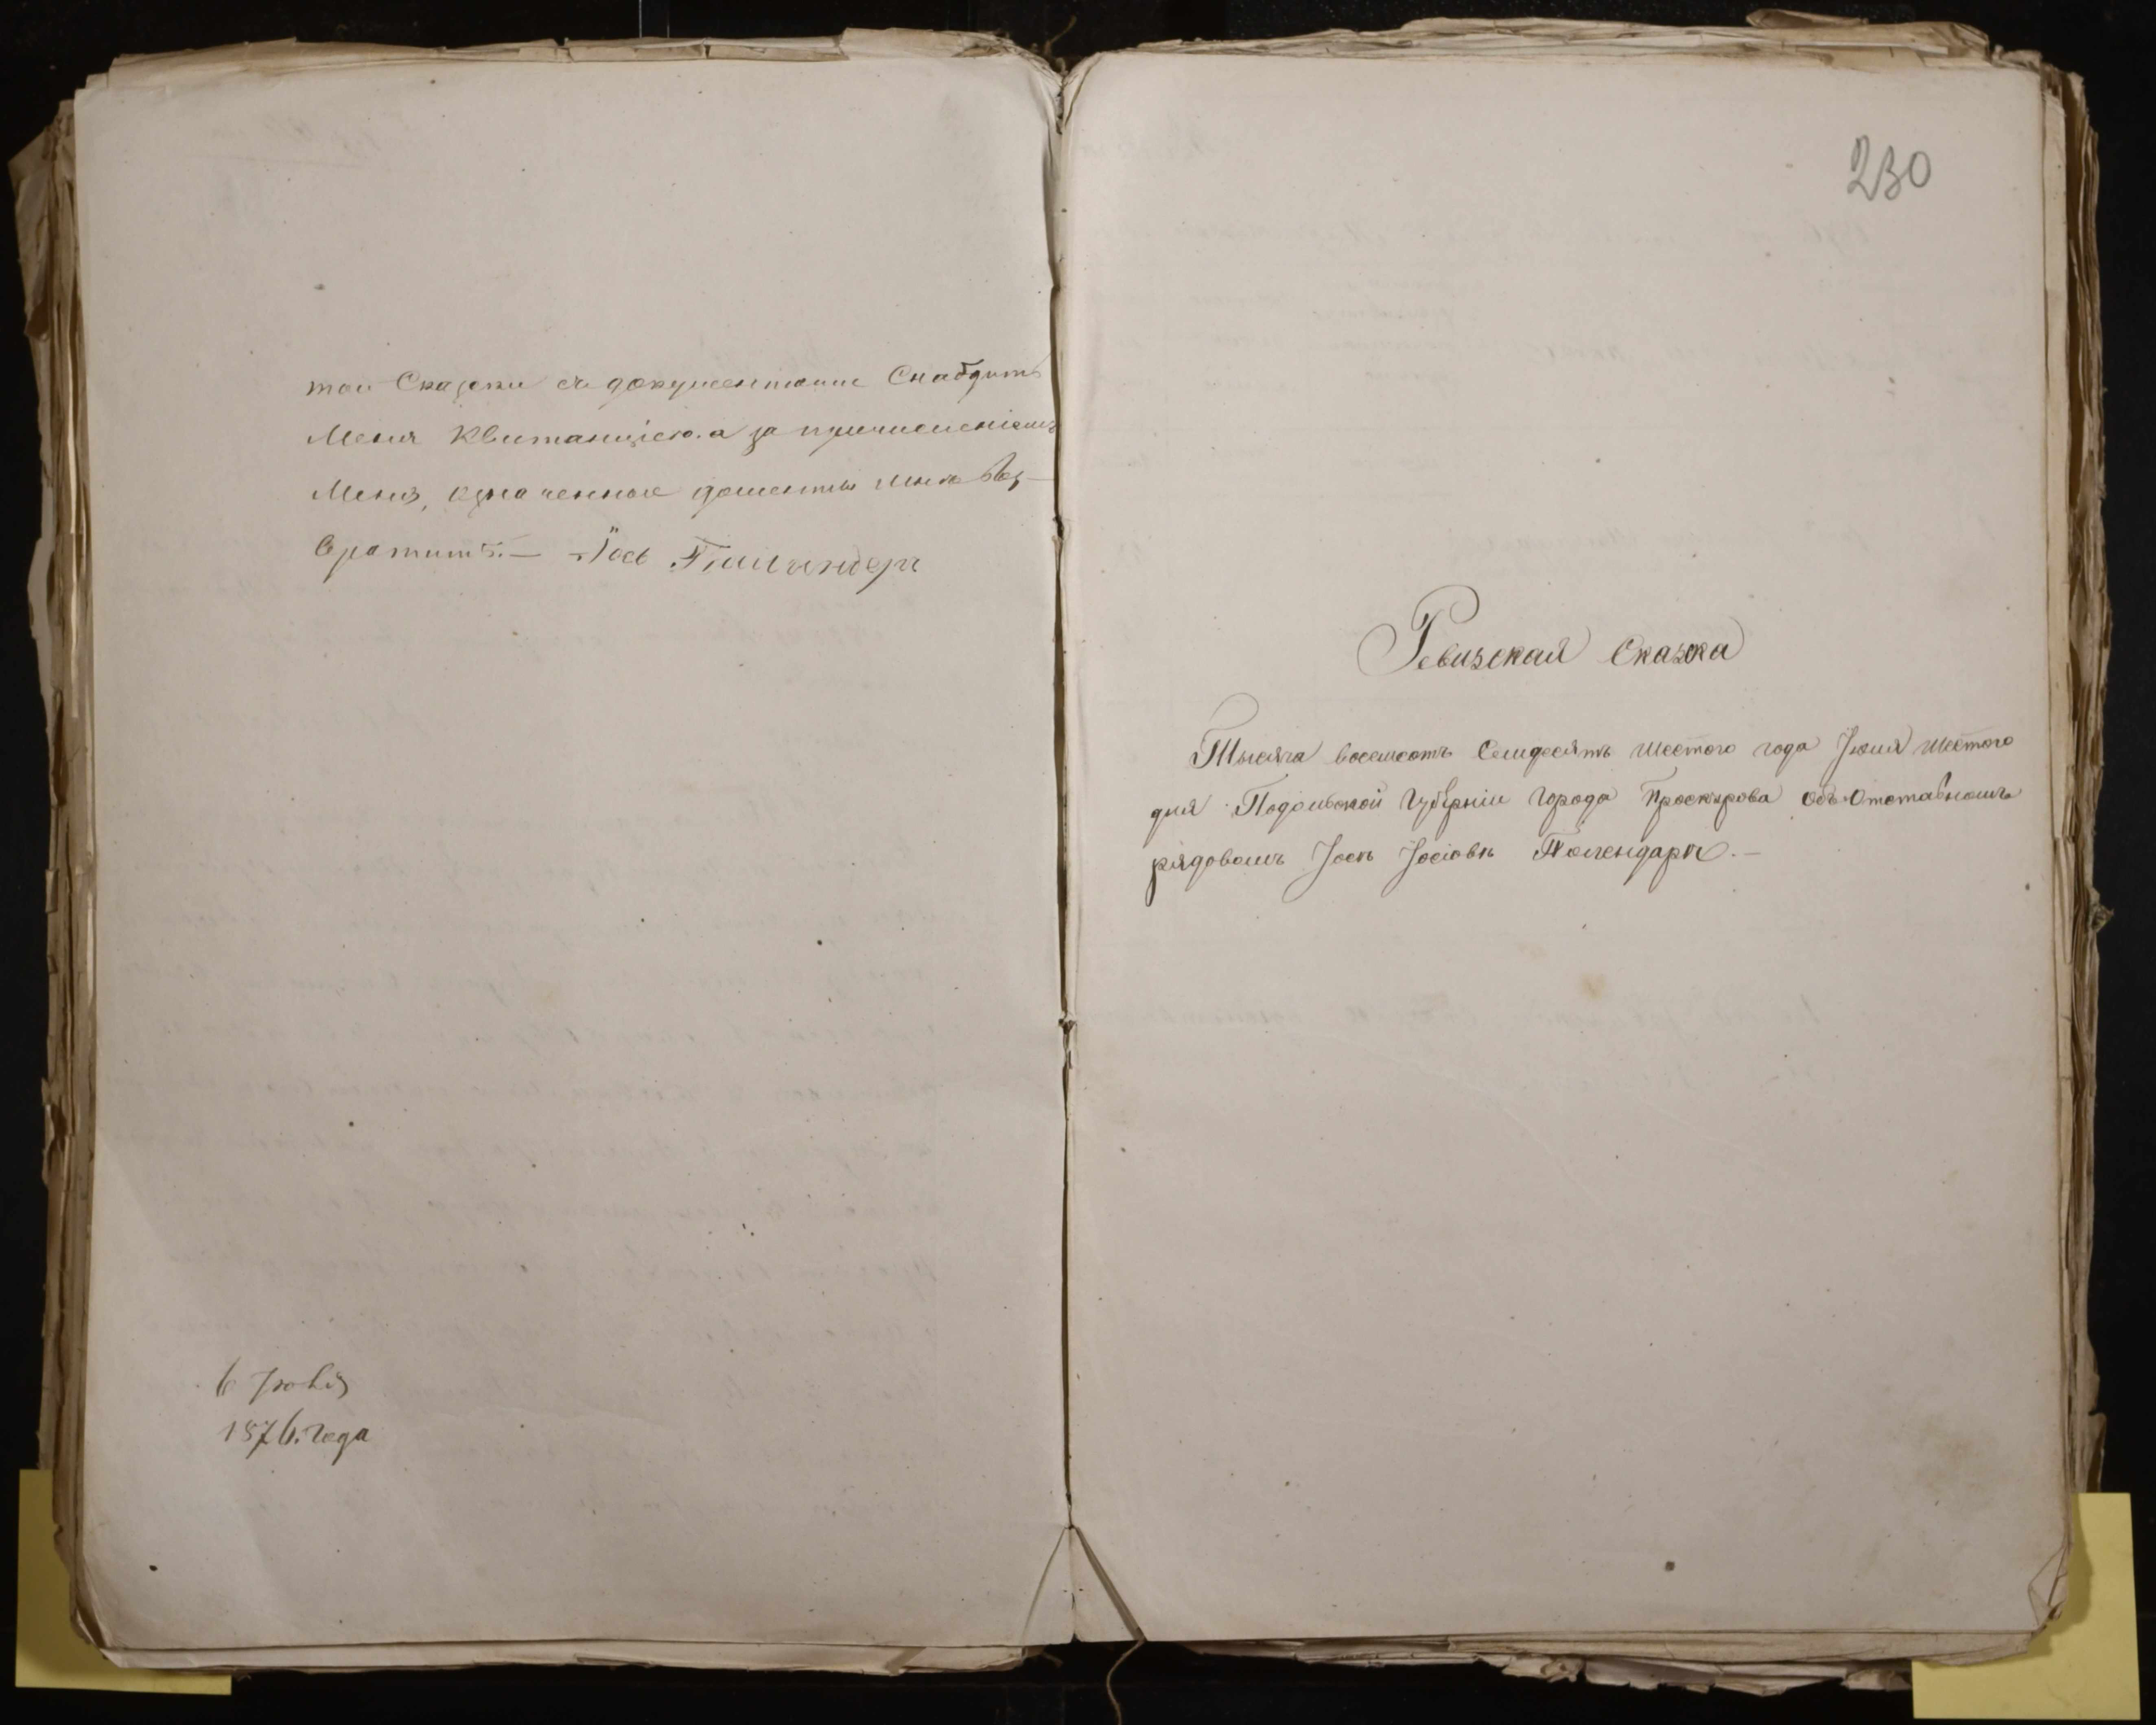 той Сказки съ документами Снабдить
Меня Квитанціею. а за причисленіемъ
Меня, означенные документы мнѣ воз-
вратить. — Іось
6 Іюня
1876. года
230
Ревизская Сказка
Тысяча восемсотъ Семдесятъ шестого года Іюня шестого
дня Подольской Губерніи Города Проскурова Объ Отставномъ
рядовомъ Іосѣ Іосіовѣ Полендарѣ. —